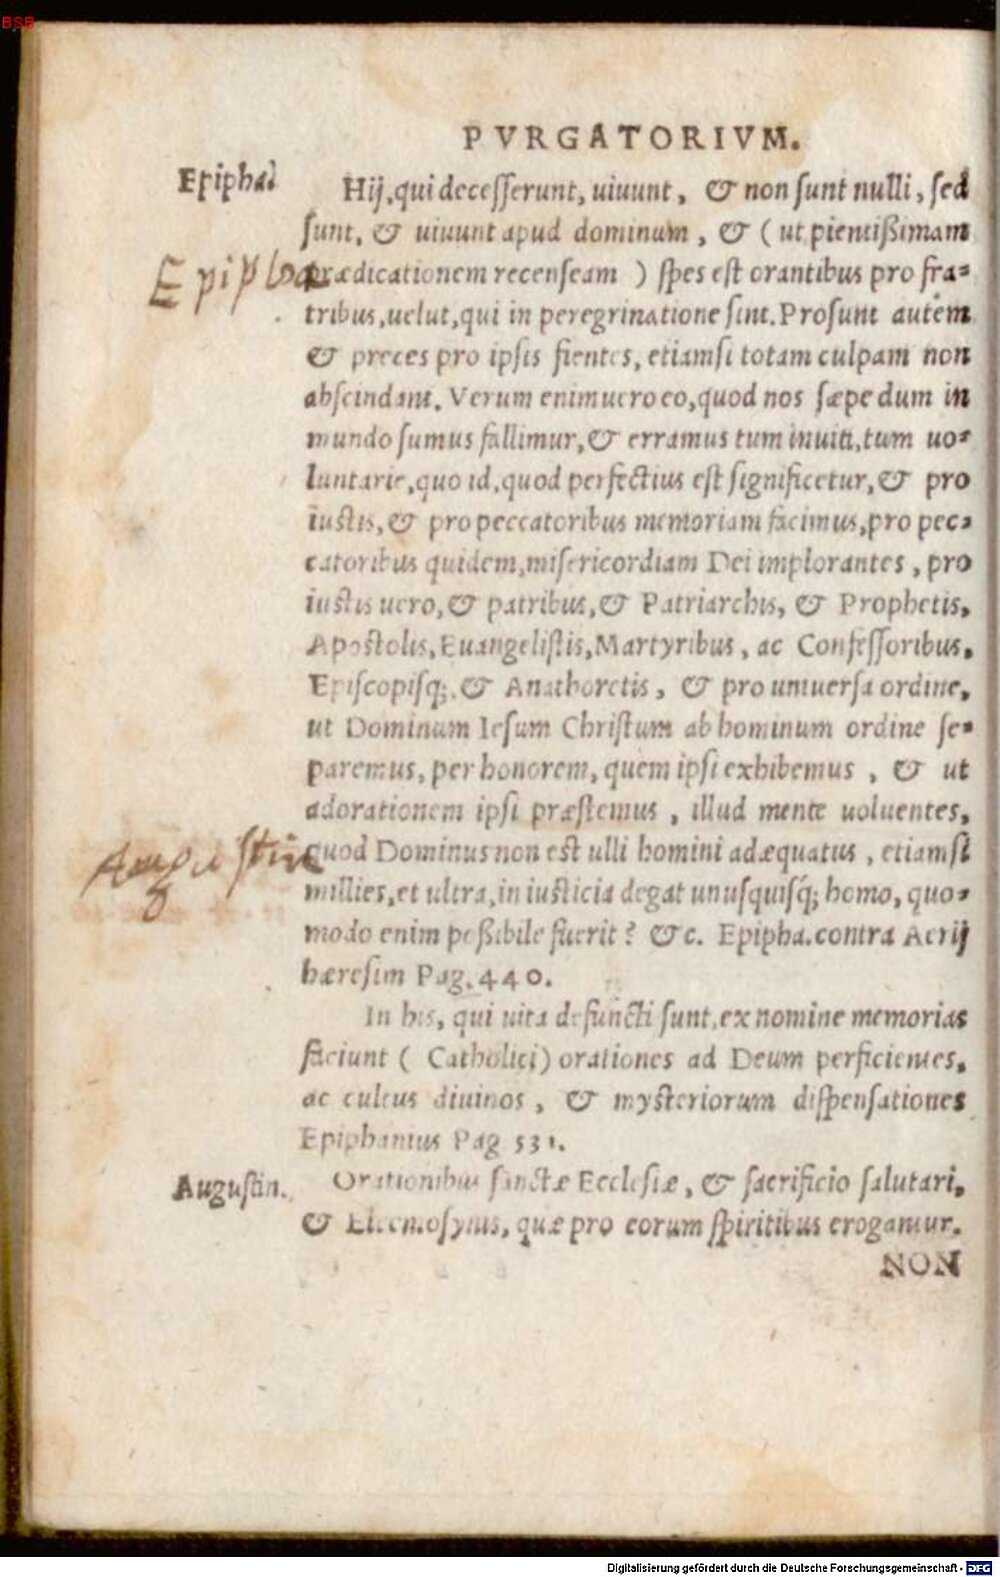 BSB
PVRGATORIVM.
Epipha.
Hij, qui decesserunt, uiuunt, & non sunt nulli, sed
sunt, & uiuunt apud dominum, & (ut pientißimam
Epipha
prædicationem recenseam ) spes est orantibus pro fra-
tribus, uelut, qui in peregrinatione sint. Prosunt autem
& preces pro ipsis fientes, etiamsi totam culpam non
abscindant. Verum enimuero eo, quod nos sæpe dum in
mundo sumus fallimur, & erramus tum inuiti, tum uo-
luntarie, quo id, quod perfectius est significetur, & pro
iustis, & pro peccatoribus memoriam facimus, pro pec-
catoribus quidem, misericordiam Dei implorantes, pro
iustis uero, & patribus, & Patriarchis, & Prophetis,
Apostolis, Euangelistis, Martyribus, ac Confessoribus,
Episcopisq;, & Anathoretis, & pro uniuersa ordine,
ut Dominum Iesum Christum ab hominum ordine se-
paremus, per honorem, quem ipsi exhibemus, & ut
adorationem ipsi præstemus, illud mente uoluentes,
Augustin
quod Dominus non est ulli homini adæquatus, etiamsi
millies, et ultra, in iusticia degat unusquisq́; homo, quo-
modo enim poßibile fuerit? &c. Epipha. contra Aerij
hæresim Pag. 440.
In his, qui uita defuncti sunt, ex nomine memorias
faciunt ( Catholici) orationes ad Deum perficientes,
ac cultus diuinos, & mysteriorum dispensationes
Epiphanius Pag 531.
Augustin.
Orationibus sanctæ Ecclesiæ, & sacrificio salutari,
& Eleemosynis, quæ pro eorum spiritibus erogantur.
NON
Digitalisierung gefördert durch die Deutsche Forschungsgemeinschaft - DFG